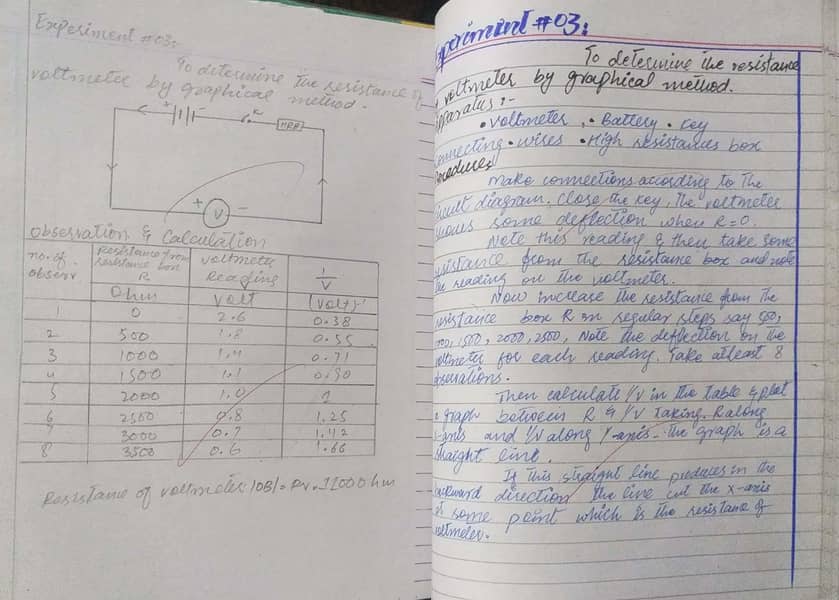 Experiment #03:
To determine the resistance of
voltmeter by graphical method.
+ -
K
HRB
+ V -
Observation & Calculation
no. of observ | Resistance from resistance box R | voltmeter Reading | 1/V
Ohm | volt | (volt)-1
1 | 0 | 2.6 | 0.38
2 | 500 | 1.8 | 0.55
3 | 1000 | 1.4 | 0.71
4 | 1500 | 1.1 | 0.90
5 | 2000 | 1.0 | 1
6 | 2500 | 0.8 | 1.25
7 | 3000 | 0.7 | 1.42
8 | 3500 | 0.6 | 1.66
Resistance of voltmeter |OB| = Rv = 1100 ohm
xperiment #03:
To determine the resistance
voltmeter by graphical method.
pparatus :-
• Voltmeter • Battery • Key
onnecting • wires • High resistances box
rocedure
Make connections according to the
circuit diagram. Close the key, the voltmeter
shows some deflection when R=0.
Note this reading & then take some
resistance from the resistance box and note
the reading on the voltmeter.
Now increase the resistance from the
resistance box R in regular steps say 500,
1500, 2000, 2500, Note the deflection on the
voltmeter for each reading. Take atleast 8
observations.
Then calculate 1/V in the table & plot
a graph between R & 1/V taking. R along
x-axis and 1/V along Y-axis. The graph is a
straight line.
If this straight line produces in the
backward direction the line cut the x-axis
at some point which is the resistance of
voltmeter.